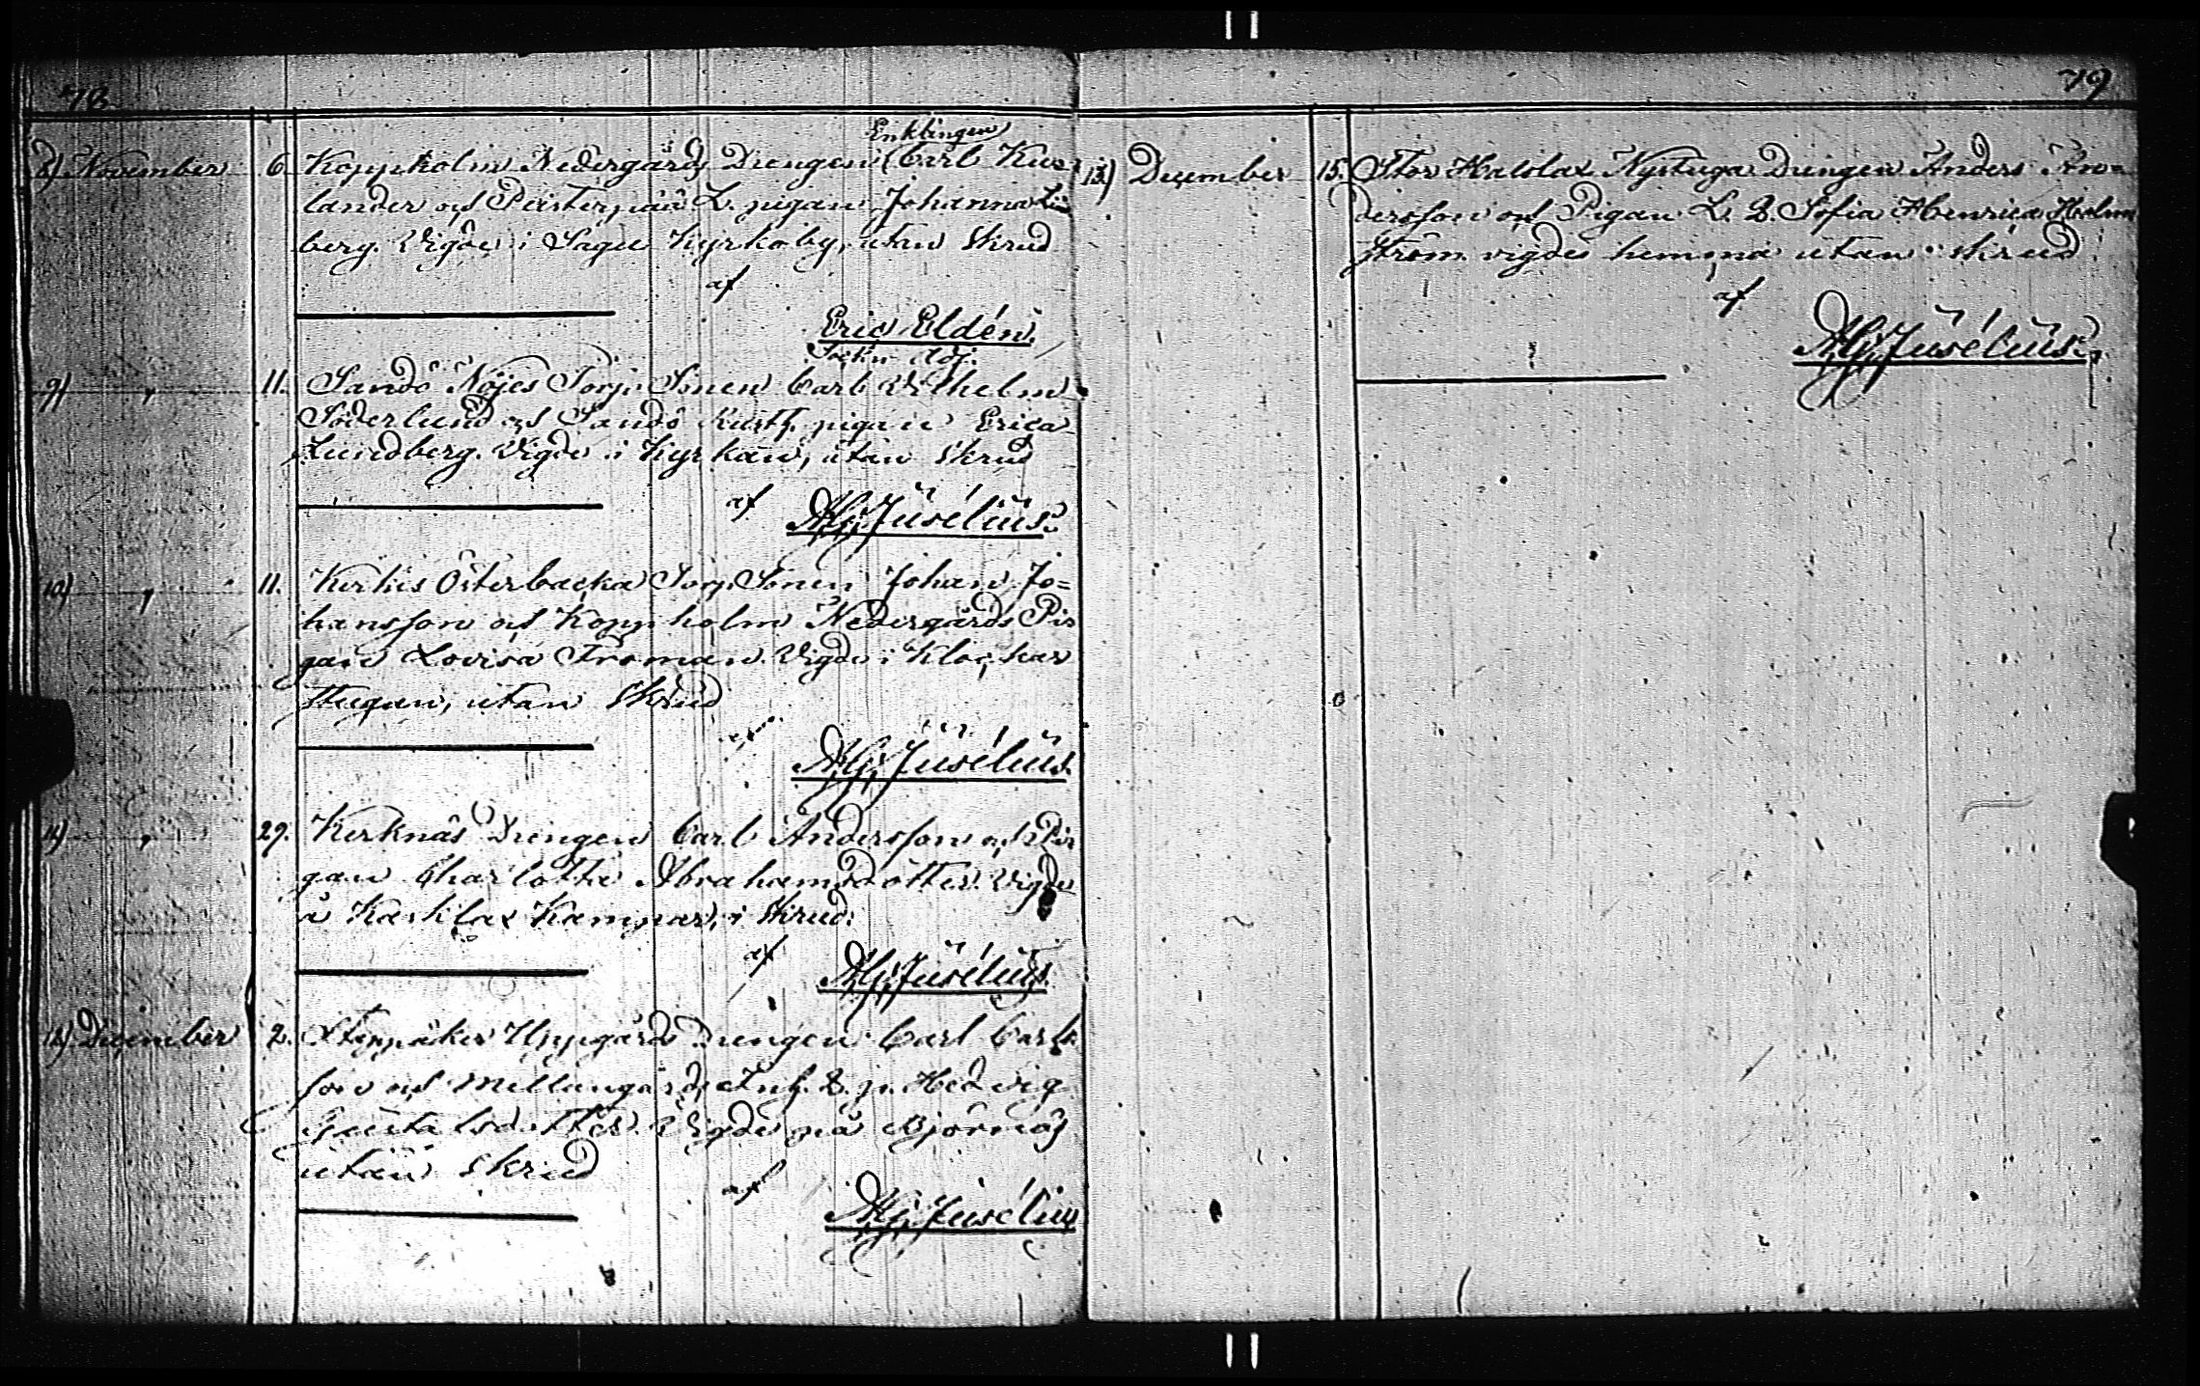 78
Enklingen
8) November 6. Koppholm Nedergårds Drengen Carl Kus-
lander och Pästerpää L. pigan Johanna Lin
berg. Vigde i Sagu Kyrkoby, utan Skrud
af
Eric Eldén.
Sockn. Adj.
9) " 11. Sandö Nöjes Torp. Sonen Carl Wilhelm
Söderlund och Sandö Rusth. pigan Erica
Lundberg. Vigde i Kyrkan, utan Skrud
af
Alg. Jusélius.
10) " 11. Kirkis Österbacka Torp. Sonen Johan Jo=
hansson och Koppholm Nedergårds Pi-
gan Lovisa Froman. Vigde i Klockar
stugan, utan Skrud
af
Alg. Jusélius.
11) " 29. Kerknäs Drengen Carl Andersson och Pi-
gan Charlotta Abrahamsdotter. Vigde
å Karklax Kampar, i Skrud.
af
Alg. Jusélius.
12) December 2. Uppgårds Drengen Carl Carls
son och Mellangårds Inh. D. p. Hedvig
Gustafsdotter. Vigde på Björnäs
utan Skrud
af
Alg. Jusélius
79
13) December 15. Stor Halslax Nystuga Drengen Anders An=
dersson och Pigan L. D. Sofia Henrica Holm
ström. vigdes hemma utan skrud
af
Alg. Jusélius.